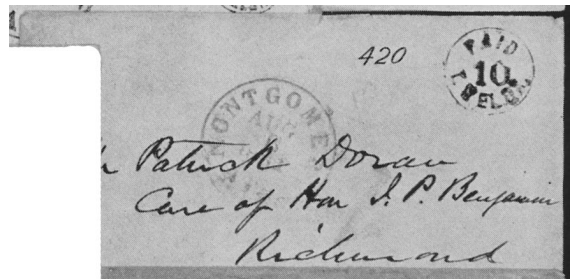 420
PAID
10.
T. WELSH.
MONTGOME
AUG
Patrick Doran
Care of Hon J. P. Benjamin
Richmond